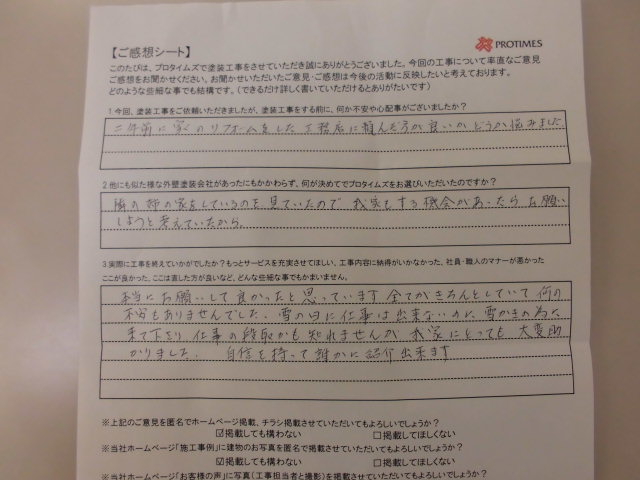 PROTIMES
【ご感想シート】
このたびは、プロタイムズで塗装工事をさせていただき誠にありがとうございました。今回の工事について率直なご意見
ご感想をお聞かせください。お聞かせいただいたご意見・ご感想は今後の活動に反映したいと考えております。
どのような些細な事でも結構です。(できるだけ詳しく書いていただけるとありがたいです)
1.今回、塗装工事をご依頼いただきましたが、塗装工事をする前に、何か不安や心配事がございましたか?
二年前に家のリフォームをした工務店に頼んだ方が良いかどうか悩みました
2.他にも似た様な外壁塗装会社があったにもかかわらず、何が決めてでプロタイムズをお選びいただいたのですか?
隣の姉の家をしているのを見ていたので 我家もする機会があったらお願い
しようと考えていたから。
3.実際に工事を終えていかがでしたか?もっとサービスを充実させてほしい、工事内容に納得がいかなかった、社員・職人のマナーが悪かった
ここが良かった、ここは直した方が良いなど、どんな些細な事でもかまいません。
本当にお願いして良かったと思っています 全てがきちんとしていて何の
不安もありませんでした、雪の日に仕事は出来ないのに、雪かきの為に
来て下さり 仕事の段取かも知れませんが 我家にとっても 大変助
かりました、 自信を持って誰かに紹介出来ます
※上記のご意見を匿名でホームページ掲載、チラシ掲載させていただいてもよろしいでしょうか?
☑掲載しても構わない □掲載してほしくない
※当社ホームページ「施工事例」に建物のお写真を匿名で掲載させていただいてもよろしいでしょうか?
☑掲載しても構わない □掲載してほしくない
※当社ホームページ「お客様の声」に写真(工事担当者と撮影)を掲載させていただいてもよろしいでしょうか?